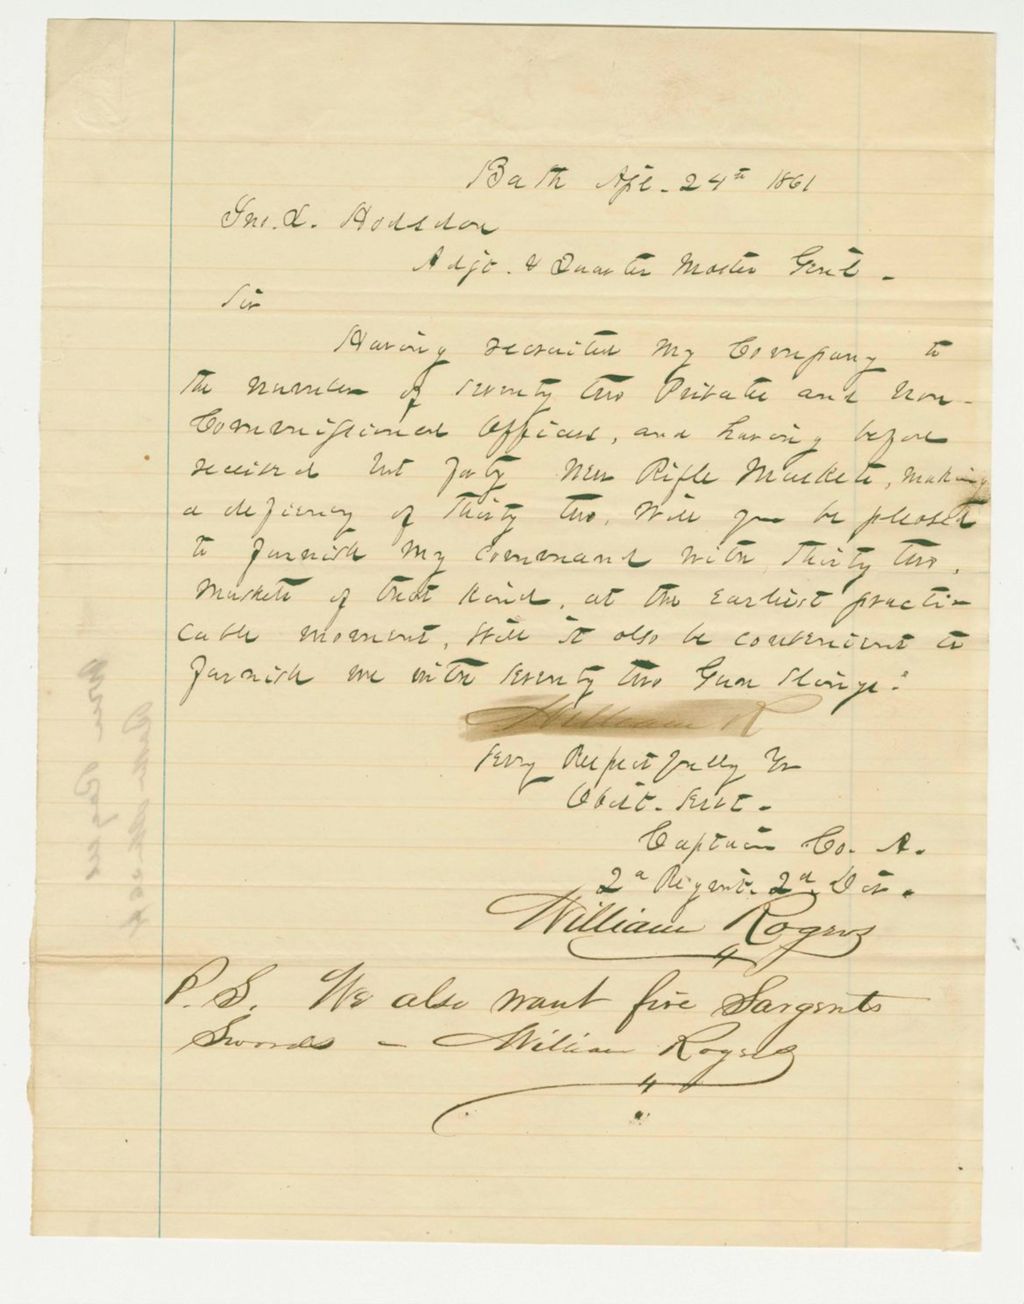 Bath Apl. 24th 1861
Jno. L. Hodsdon
Adjt. & Quarter Master Genl.
Sir
Having recruited my Company to
the number of seventy two Private and non-
Commissioned Officers, and having before
received but forty new Rifle Muskets, making
a deficiency of thirty two, Will you be pleased
to furnish my command with thirty two,
Muskets of that kind, at the earliest practi-
cable moment, Will it also be convenient to
furnish me with seventy two Gun Slings.
William R
Very Respectfully Yr
Obdt. Servt.
Captain Co. A.
2d Regmt. 2d Div.
William Rogers
P.S. We also want five Sargents
Swords - William Rogers